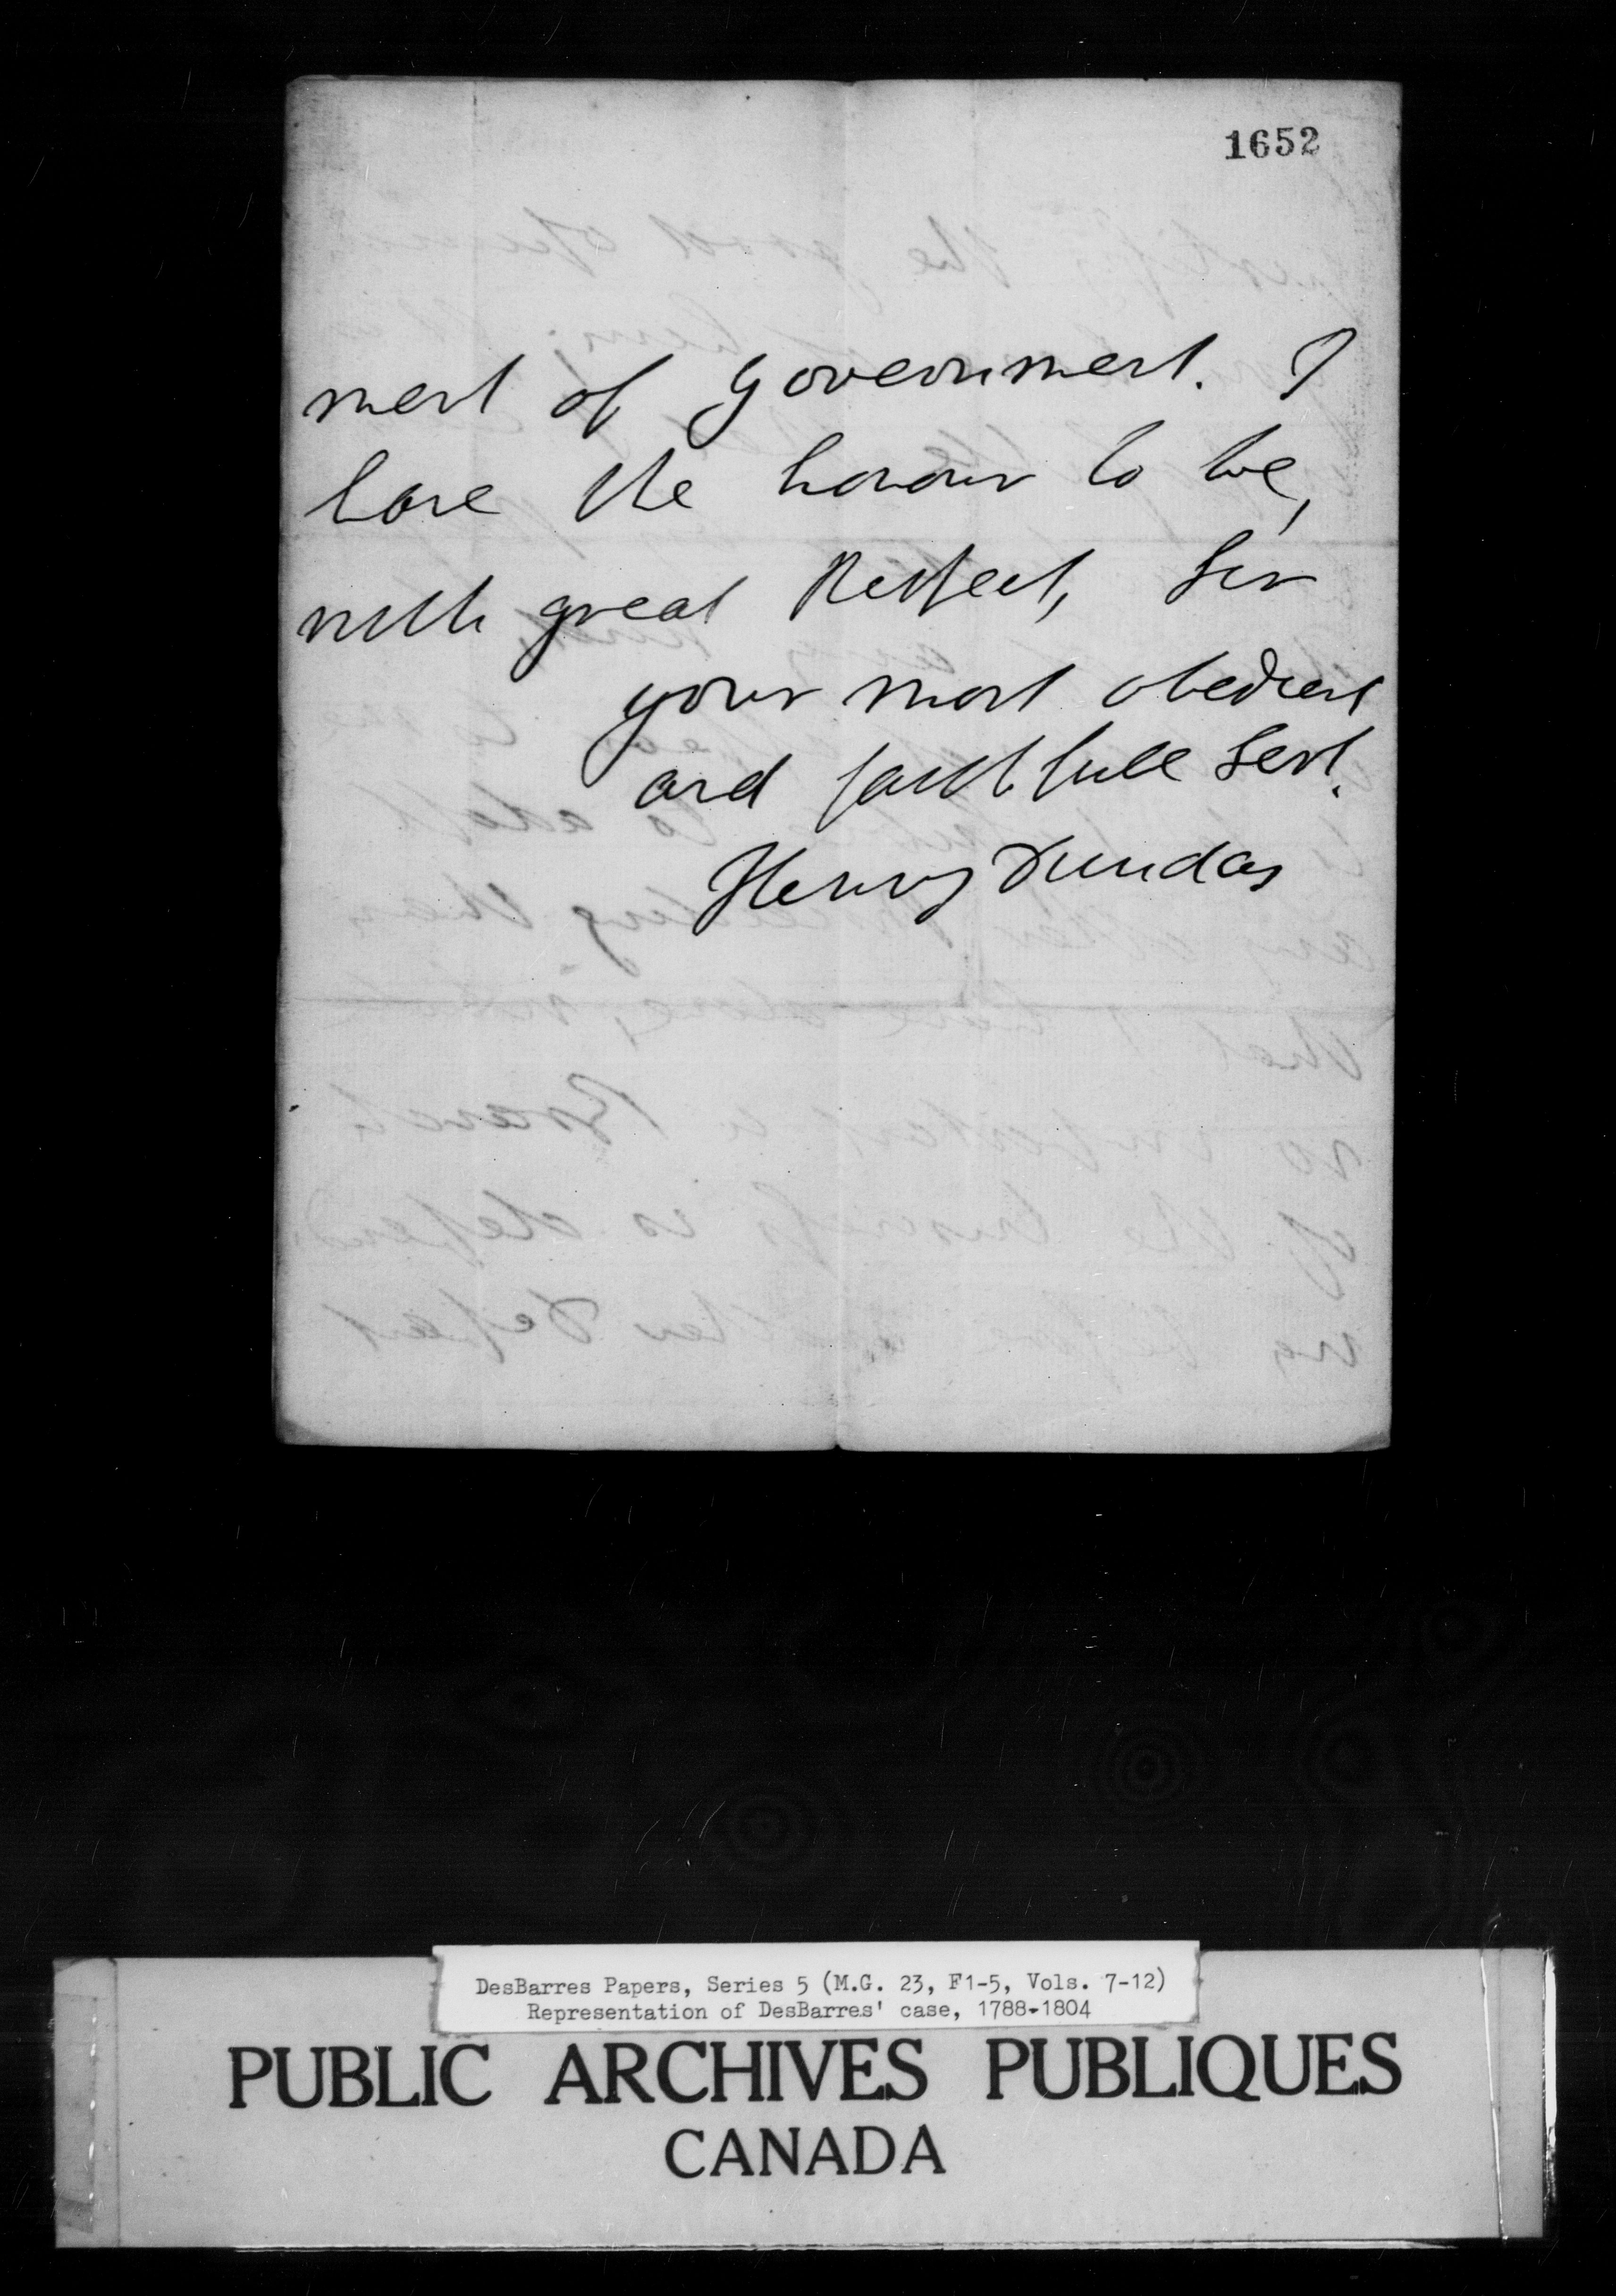 1652
ment of Government. I
have the honour to be,
with great Respect, Sir
your most obedient
and faithfull Sert.
Henry Dundas
DesBarres Papers, Series 5 (M.G. 23, F1-5, Vols. 7-12)
Representation of DesBarres' case, 1788-1804
PUBLIC ARCHIVES PUBLIQUES
CANADA